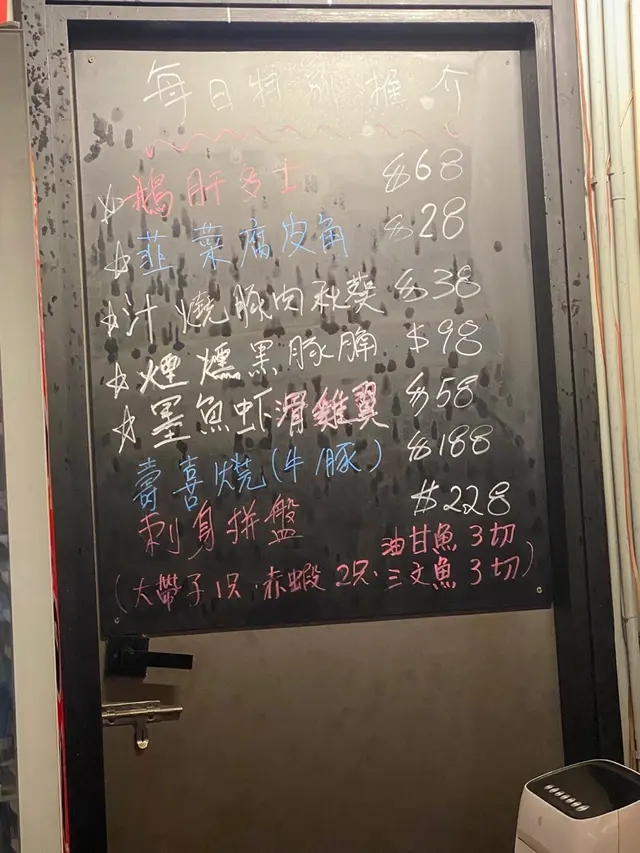 每日特別推介
☆鵝肝多士 $68
☆韮菜腐皮角 $28
☆汁燒豚肉秋葵 $38
☆煙燻黑豚腩 $98
☆墨魚蝦滑雞翼 $58
壽喜燒(牛/豚) $188
刺身拼盤 $228
(大帶子1只·赤蝦2只·油甘魚3切
三文魚3切)